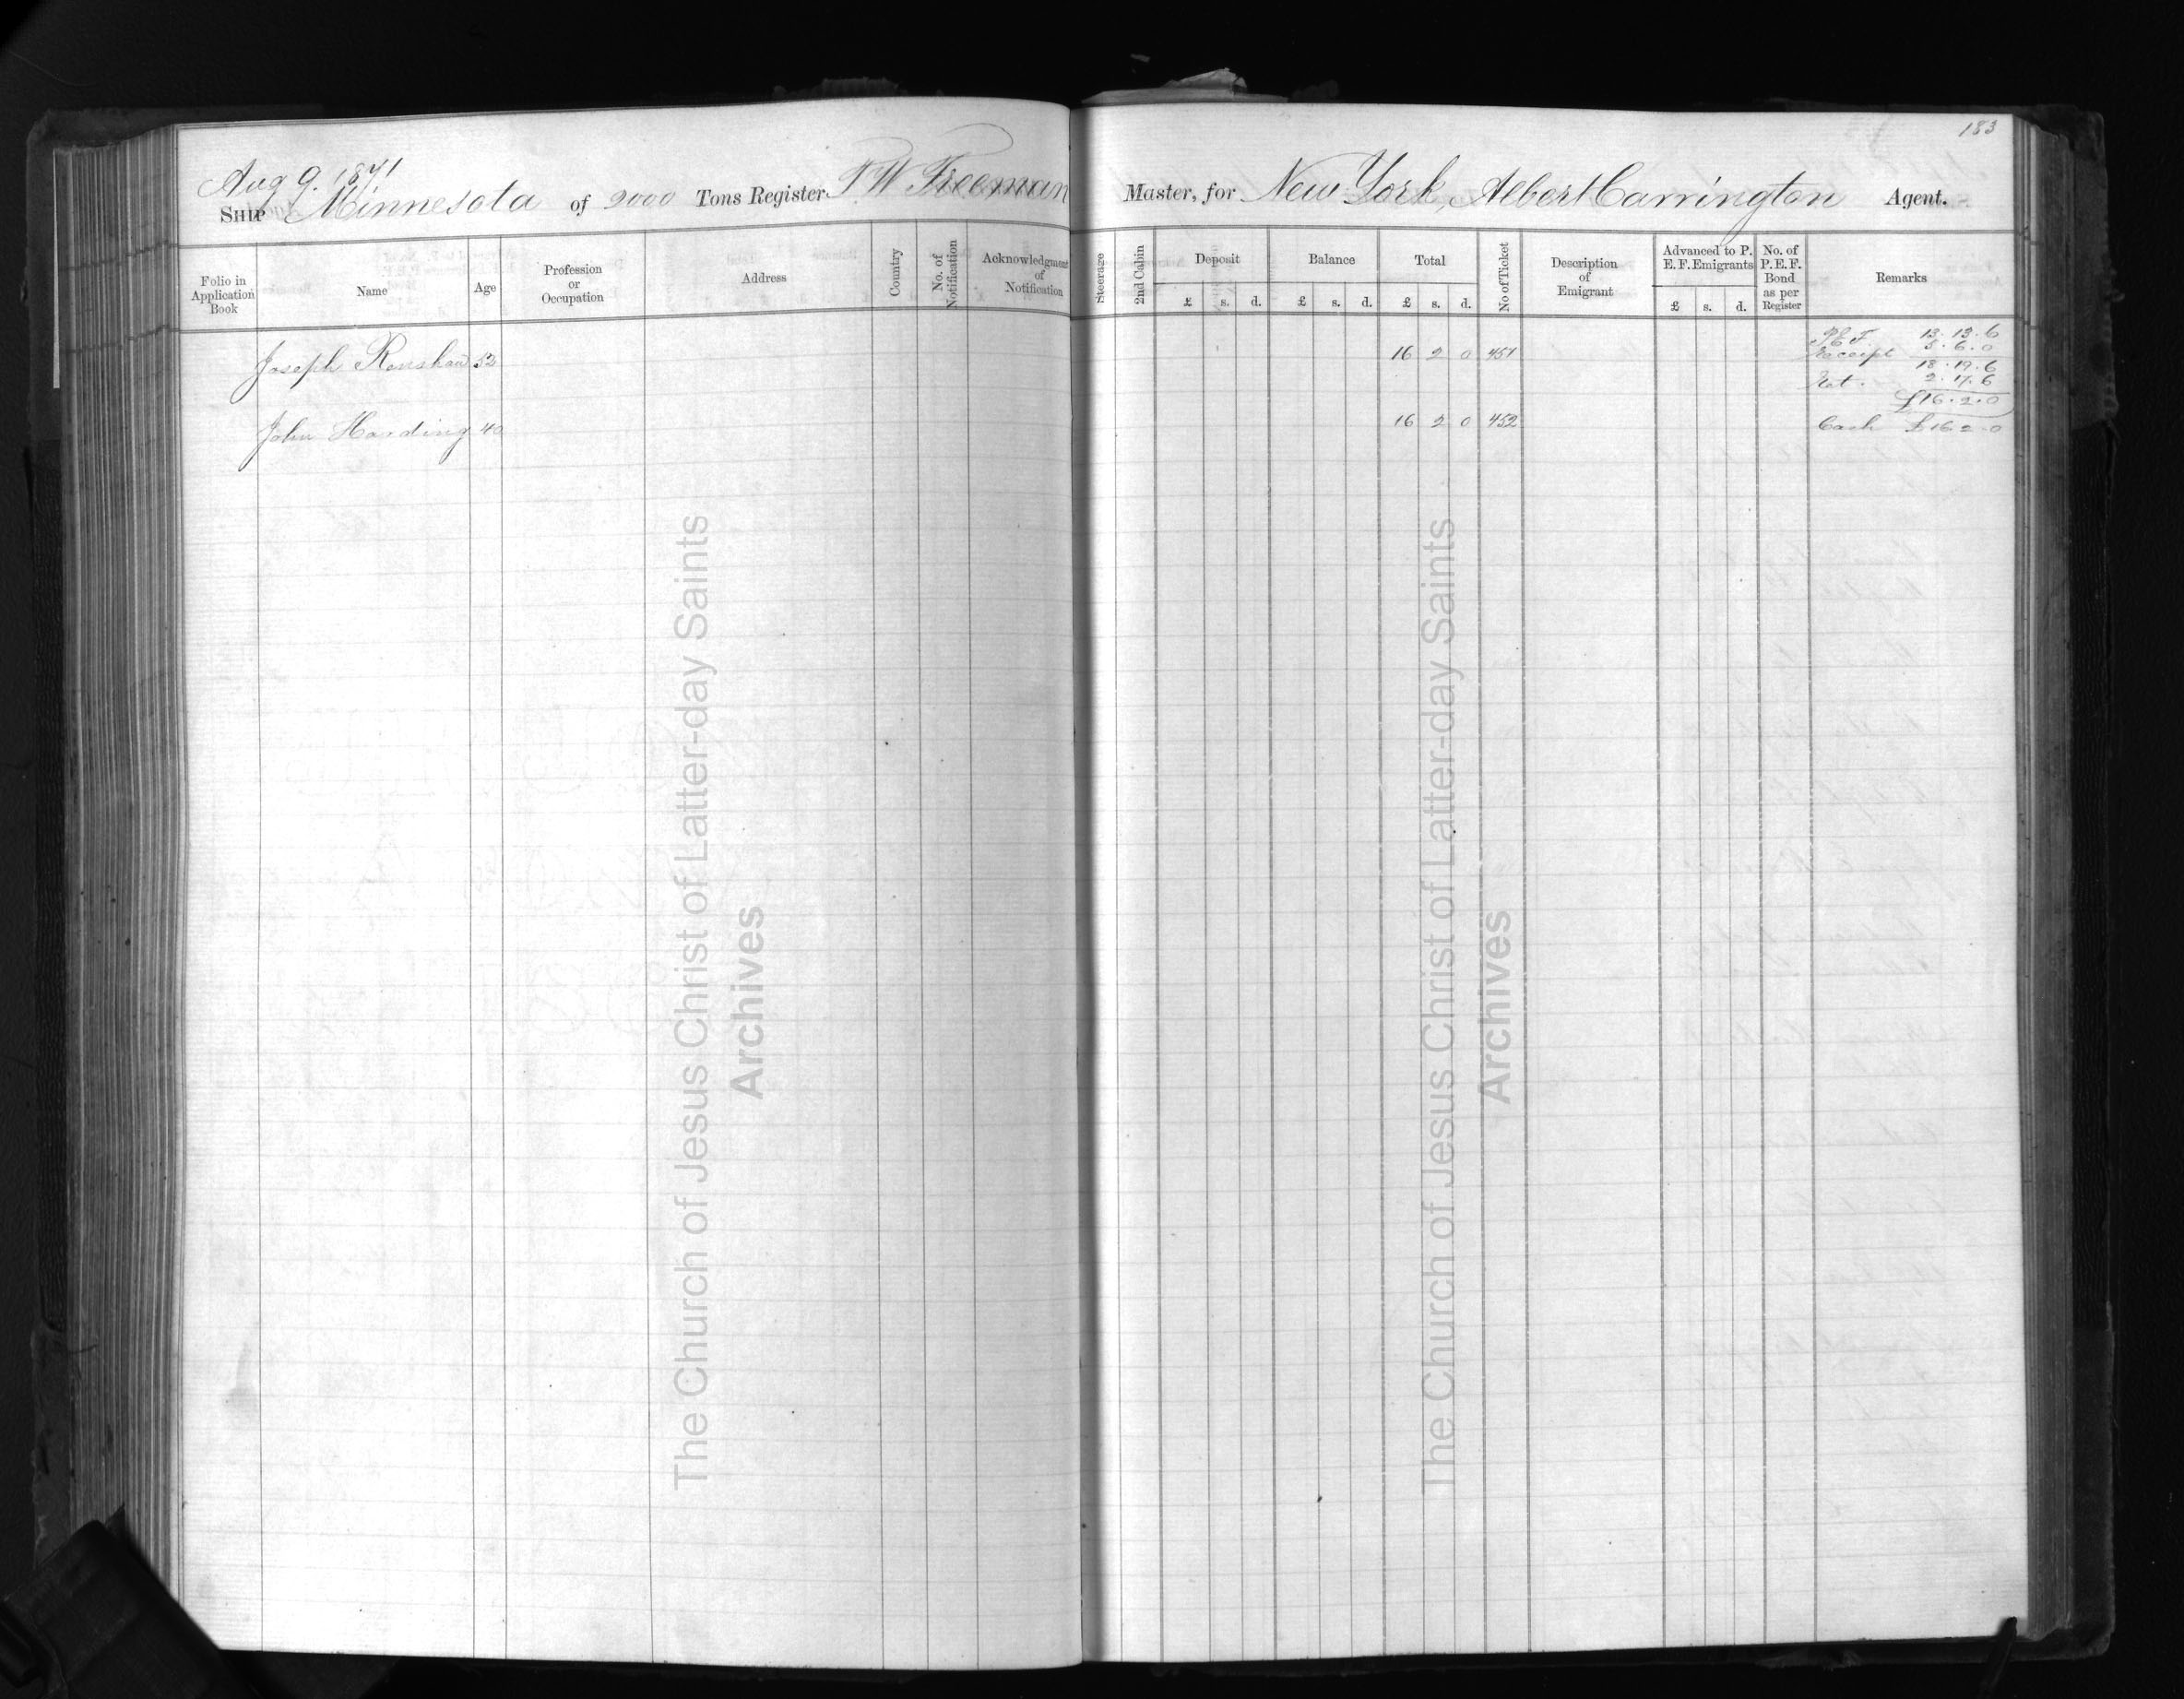 183
Aug 9. 1871
Ship Minnesota of 2000 Tons Register T W Freeman Master, for New York, Albert Carrington Agent.
Folio in Application Book
Name
Age
Profession or Occupation
Address
Country
No. of Notification
Acknowledgment of Notification
Steerage
2nd Cabin
Deposit
£ s. d.
Balance
£ s. d.
Total
£ s. d.
No of Ticket
Description of Emigrant
Advanced to P. E. F. Emigrants
£ s. d.
No. of P. E. F. Bond as per Register
Remarks
Joseph Renshaw 52 16 2 0 451
P.E.F. 13.13.6
Receipt 5.6.0
18.19.6
Ret. 2.17.6
£16.2.0
John Harding 40 16 2 0 452 Cash £16.2.0
The Church of Jesus Christ of Latter-day Saints
Archives
The Church of Jesus Christ of Latter-day Saints
Archives